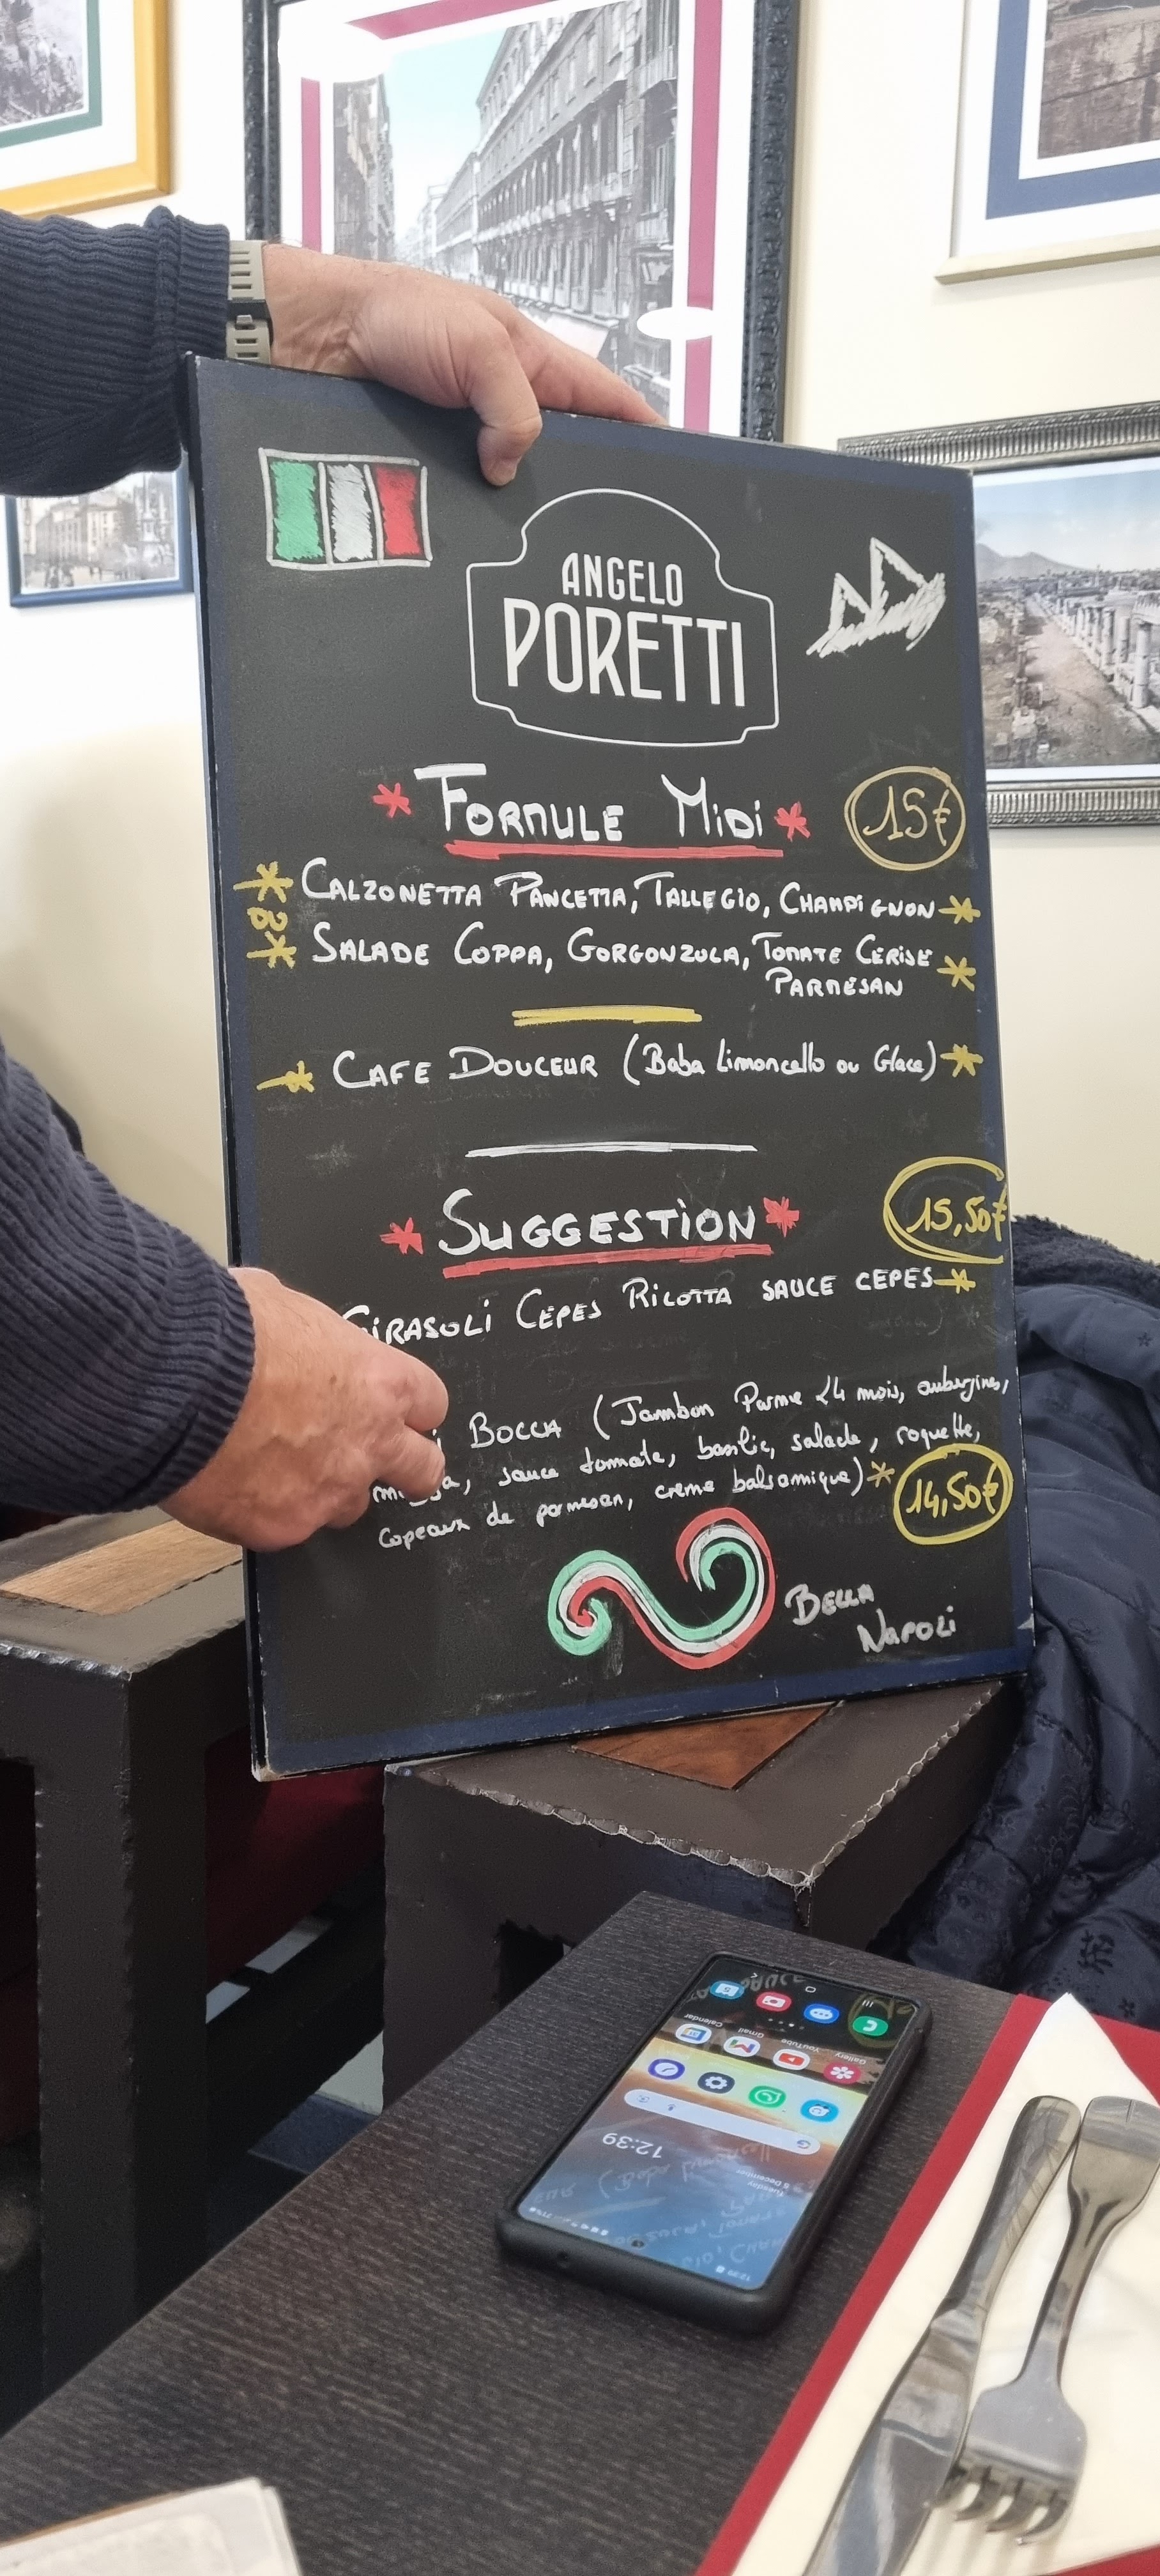 ANGELO
PORETTI
* FORMULE MiDi *
15€
* CALZONETTA PANCETTA, TALLEGIO, CHAMPiGNON *
* SALADE COPPA, GORGONZOLA, TOMATE CERISE *
PARMESAN
* CAFE DOUCEUR (Baba Limoncello ou Glace) *
* SUGGESTiON *
15,50€
GIRASOLi CEPES RICOTTA SAUCE CEPES *
BOCCA (Jambon Parme 24 mois, aubergines,
sauce tomate, basilic, salade, roquette,
copeaux de parmesan, creme balsamique) *
14,50€
BELLA
NAPOLi
Calendar
Gmail
YouTube
Gallery
12:39
Tuesday 5 December